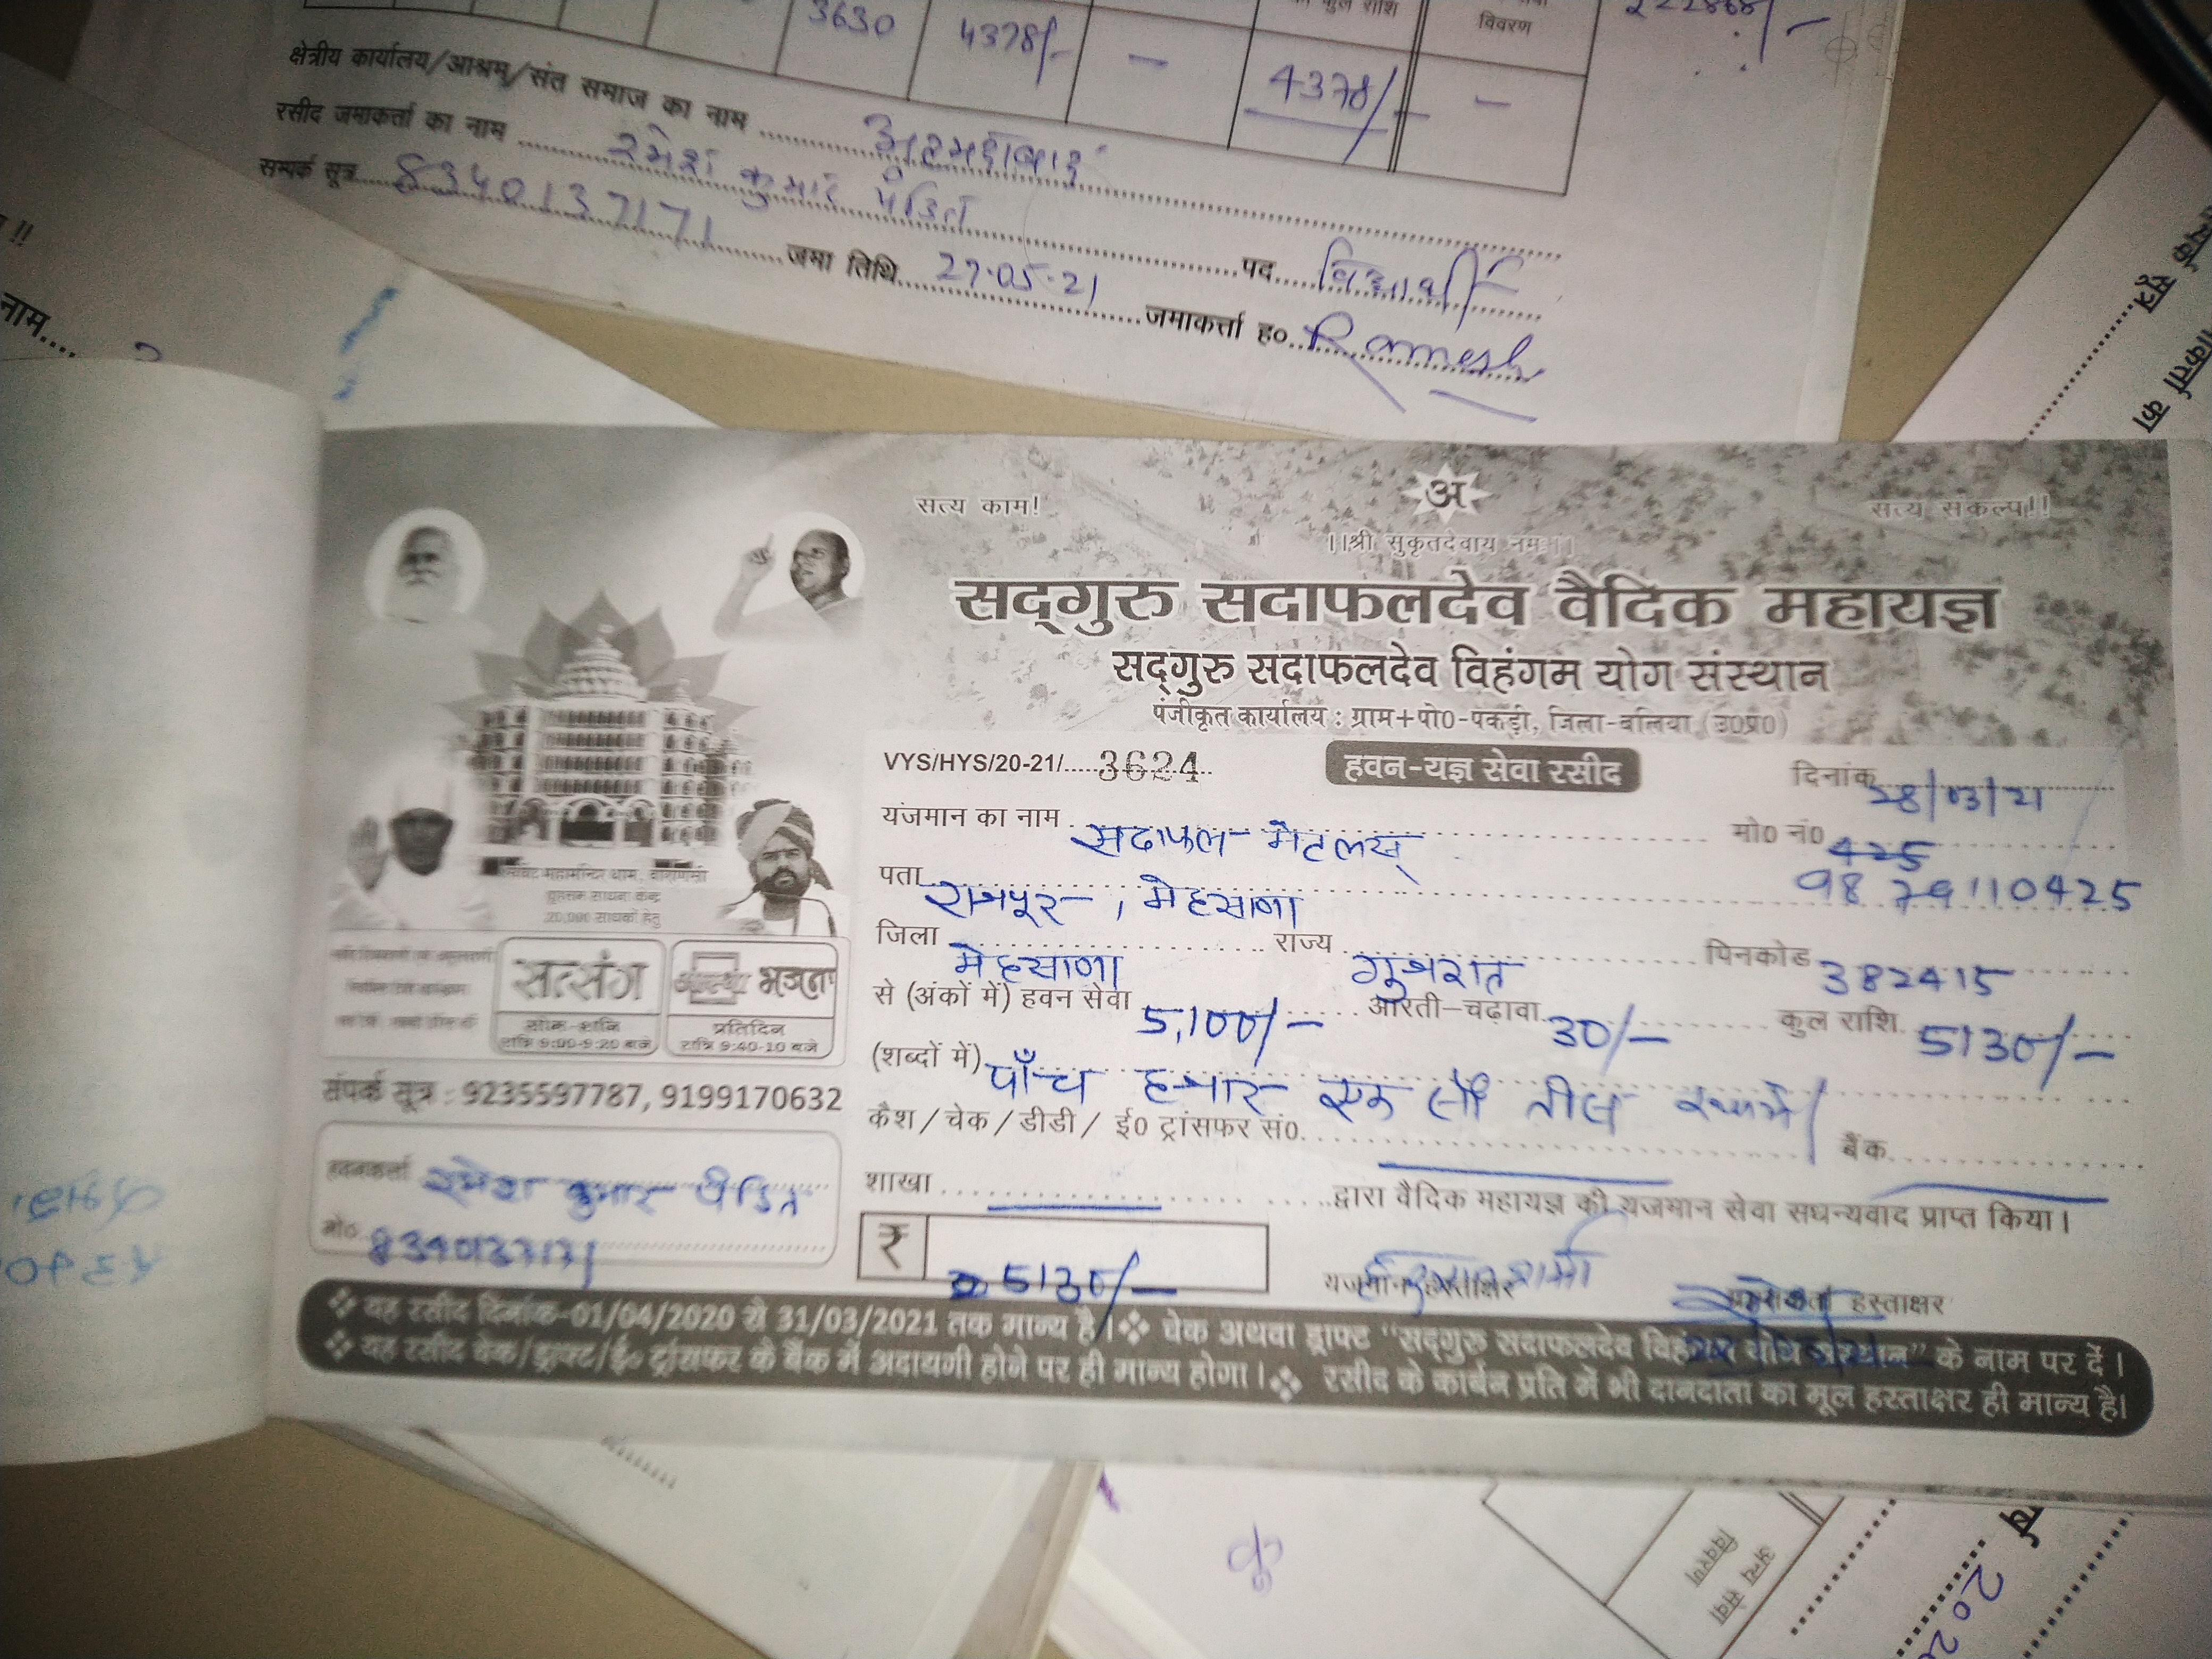 3630 4378/- — का कुल राशि 4378/- विवरण — 222868/-
क्षेत्रीय कार्यालय/आश्रम/संत समाज का नाम अहमदाबाद
रसीद जमाकर्ता का नाम रमेश कुमार पंडित पद विद्यार्थी
सम्पर्क सूत्र 8340137171 जमा तिथि 27.05.21 जमाकर्त्ता ह० Ramesh
नाम
सम्पर्क सूत्र
सत्य काम! अ सत्य संकल्प!!
।।श्री सुकृतदेवाय नमः।।
सद्गुरु सदाफलदेव वैदिक महायज्ञ
सद्गुरु सदाफलदेव विहंगम योग संस्थान
पंजीकृत कार्यालय : ग्राम+पो0-पकड़ी, जिला-बलिया (उ0प्र0)
VYS/HYS/20-21/ 3624 हवन-यज्ञ सेवा रसीद दिनांक 28/03/21
यजमान का नाम सदाफल मेटलस् मो0 नं0 425
पता राजपूर, मेहसाणा 9879110425
जिला मेहसाणा राज्य गुजरात पिनकोड 382415
से (अंकों में) हवन सेवा 5,100/- आरती-चढ़ावा 30/- कुल राशि 5130/-
(शब्दों में) पाँच हजार एक सौ तीस रुपये/
कैश/चेक/डीडी/ ई0 ट्रांसफर सं0. बैंक
शाखा द्वारा वैदिक महायज्ञ की यजमान सेवा सधन्यवाद प्राप्त किया।
₹ 5130/-
यजमान हस्ताक्षर हस्ताक्षर
महामन्दिर धाम, वाराणसी
20,000 साधकों हेतु
सत्संग
सोम-शनि
रात्रि 9:00-9:20 बजे
आस्था भजन
प्रतिदिन
रात्रि 9:40-10 बजे
संपर्क सूत्र : 9235597787, 9199170632
हवनकर्ता रमेश कुमार पंडित
मो0 8340137171
❖ यह रसीद दिनांक-01/04/2020 से 31/03/2021 तक मान्य है। ❖ चेक अथवा ड्राफ्ट "सद्गुरु सदाफलदेव विहंगम योग संस्थान" के नाम पर दें।
❖ यह रसीद चेक/ड्राफ्ट/ई० ट्रांसफर के बैंक में अदायगी होने पर ही मान्य होगा। ❖ रसीद के कार्बन प्रति में भी दानदाता का मूल हस्ताक्षर ही मान्य है।
अन्य सेवा
विवरण